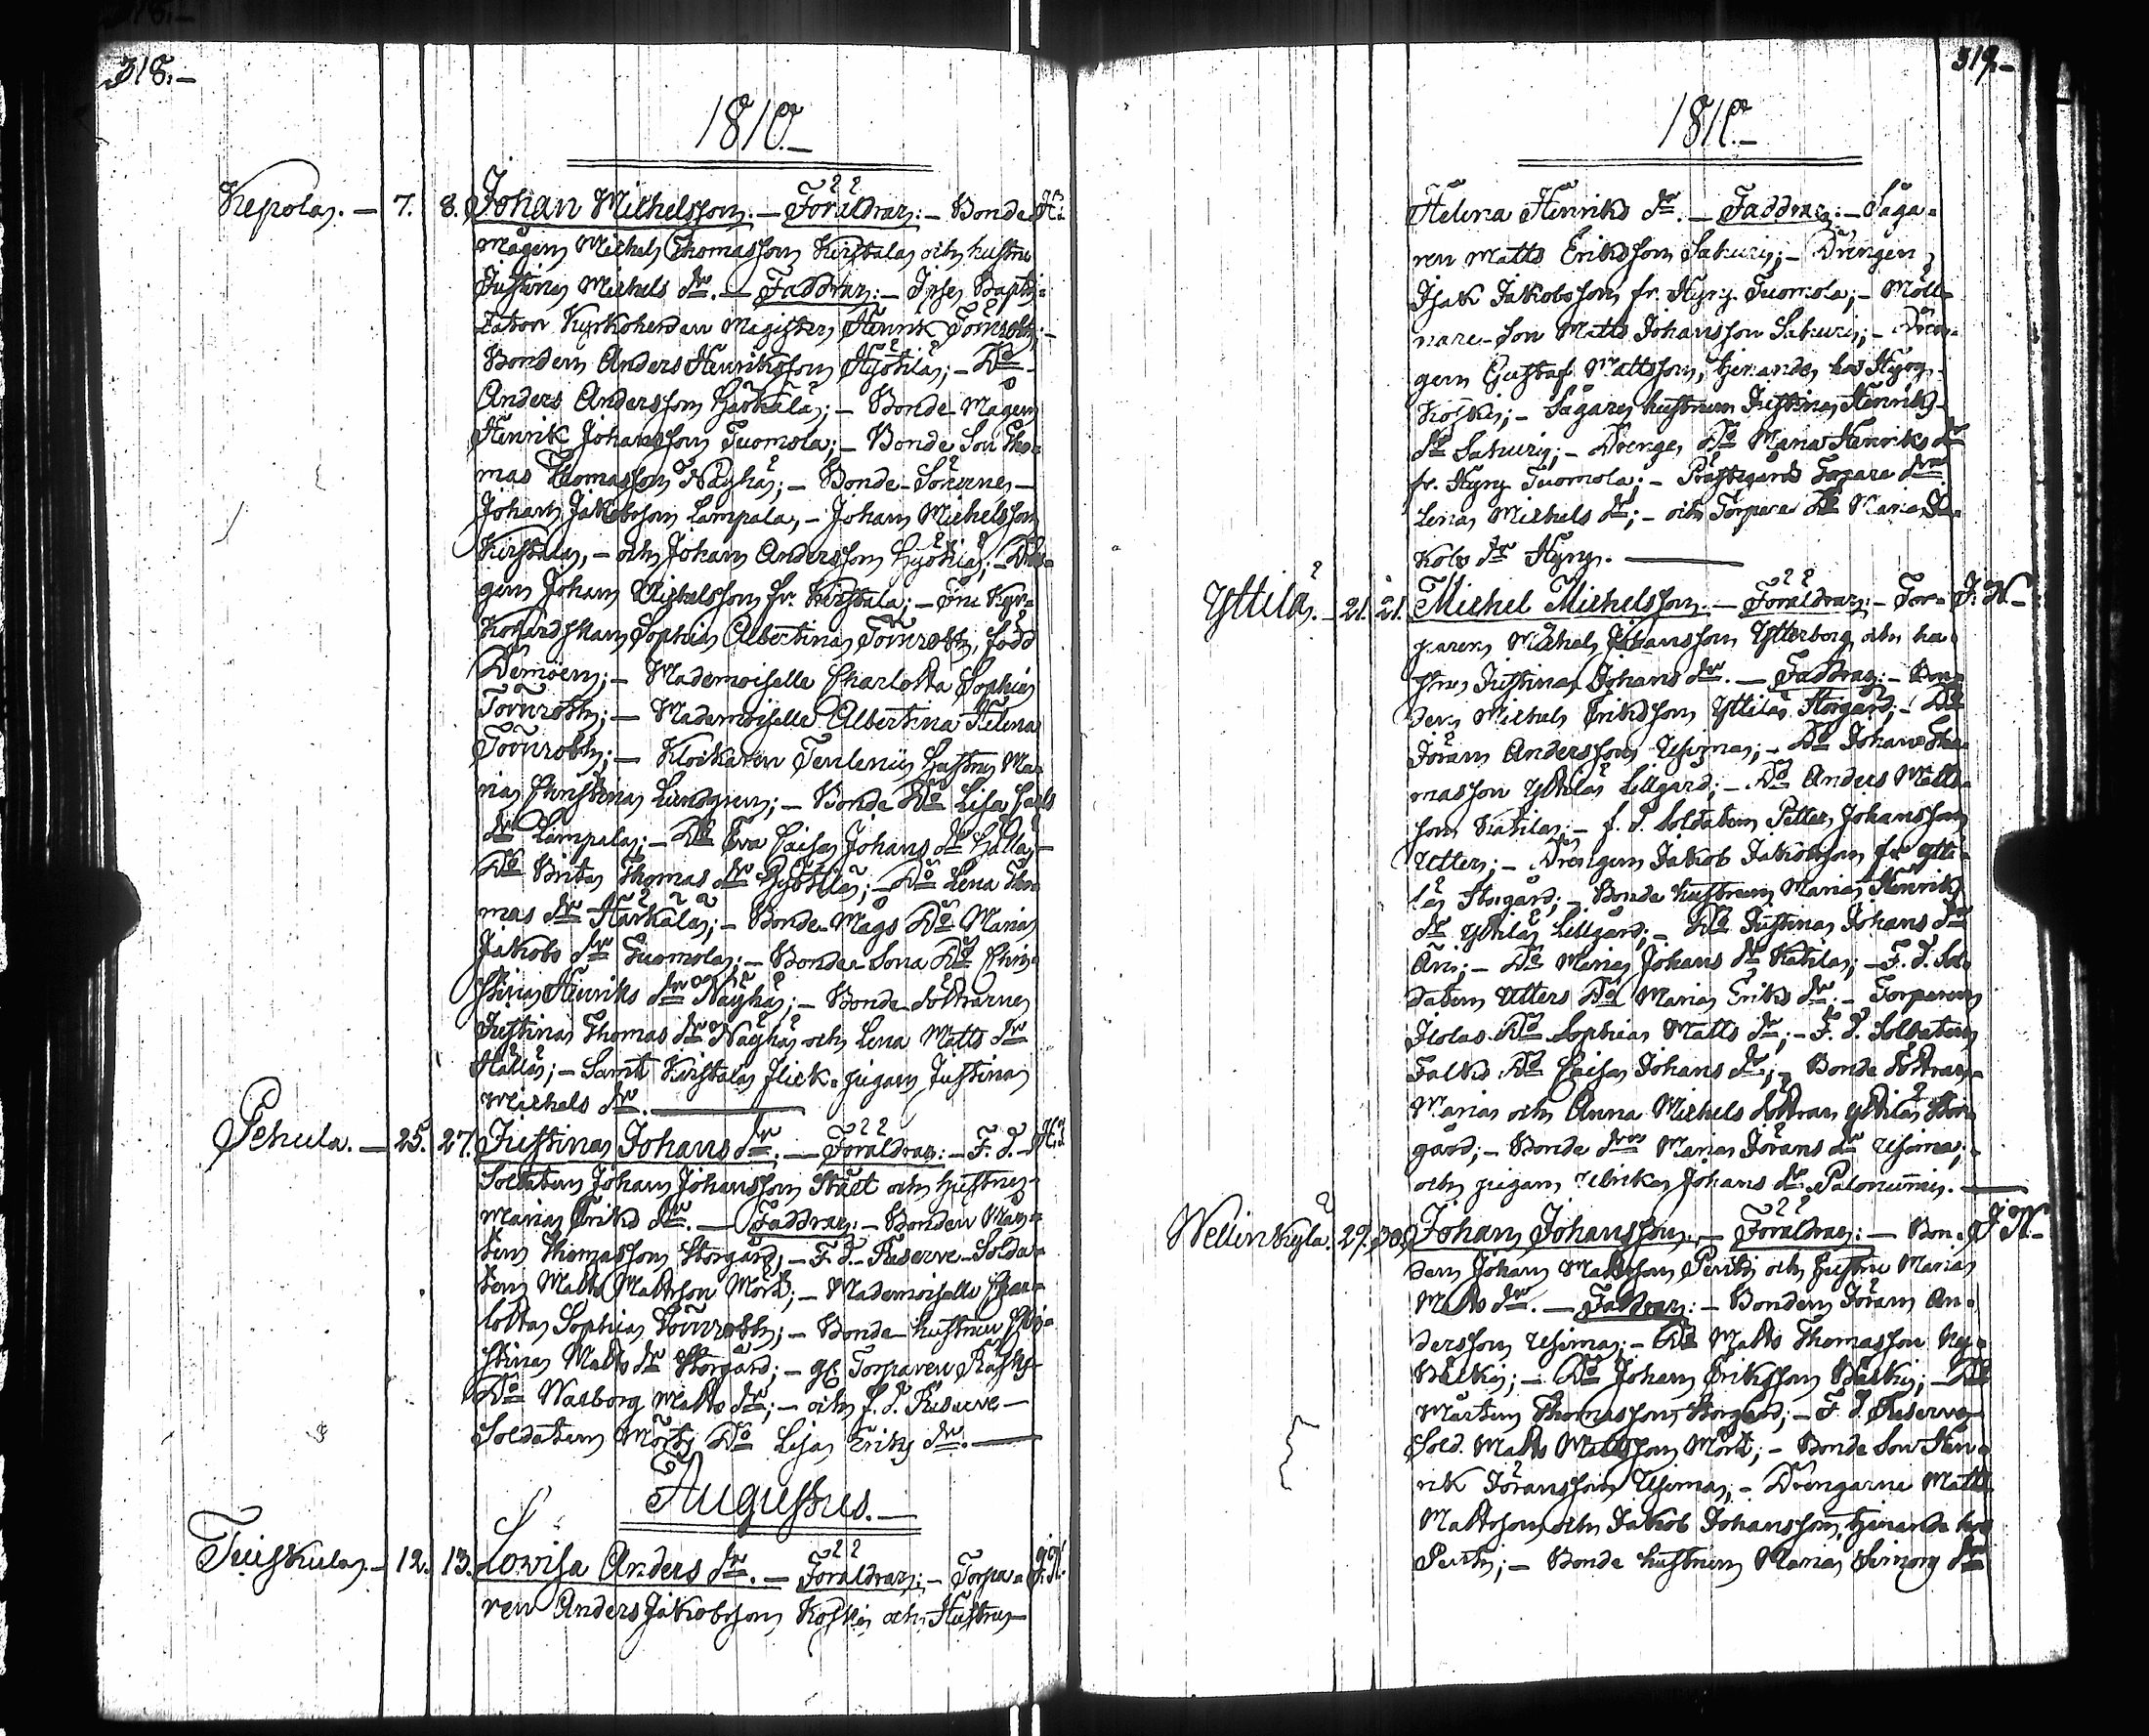 318.–
1810.–
Kepola. — 7. 8. Johan Michelsson. — Föräldrar: — Bonde
Mågen Michel Thomasson Kirstala och hustru
Justina Michels dr. — Faddrar: — Ipse Bapti-
zator Kyrkoherden Magister Henrik Törnroth; —
Bonden Anders Henriksson Hyötilä; — Do
Anders Andersson Härkälä; — Bonde Mågen
Henrik Johansson Tuomola; — Bonde Son Tho-
mas Thomasson Näyhä; — Bonde Sönerne —
Johan Jakobsson Lampala, — Johan Michelsson
Kirstala, — och Johan Andersson Hyötilä; — Drän-
gen Johan Michelsson fr. Kirstala; — Fru Kyr-
koherdskan Sophia Albertina Törnroth, född
— Mademoiselle Charlotta Sophia
Törnroth; — Mademoiselle Albertina Helena
Törnroth; — Klockaren Tenlenii Hustru Ma-
ria Christina Lundgren; — Bonde Do Lisa Carls
dr Lampala; — Do Eva Caisa Johans dr Hälla, —
Do Brita Thomas dr Hyötilä; — Do Lena Tho-
mas dr Härkälä; — Bonde-Mågs Do Maria
Jakobs dr Tuomola; — Bonde-Sona Do Chri-
stina Henriks dr Näyhä; — Bonde döttrarne
Justina Thomas dr Näyhä och Lena Matts dr
Hälla; — Samt Kirstala flick-pigan Justina
Michels dr.
Pehula. — 25. 27. Justina Johans dr. — Föräldrar: — F. d.
Soldaten Johan Johansson Stält och hustru
Maria Eriks dr. — Faddrar: — Bonden Mår-
ten Thomasson Storgård; — F. d. Reserve-Solda-
ten Matts Mattsson Mörk; — Mademoiselle Char-
lotta Sophia Törnroth; — Bonde-hustrun Chri-
stina Matts dr Storgård; — gl. Torparen
Do Walborg Matts dr; — och f. d. Reserve —
Soldaten Mörks Do Lisa Eriks dr.
Augustus.
Tuiskula. — 12. 13. Lovisa Anders dr. — Föräldrar: — Torpa-
ren Anders Jakobsson Koski och Hustru
319.–
1810.–
Helena Henriks dr. — Faddrar: — Såga-
ren Matts Eriksson Sahuri; — Drengen
Isak Jakobsson fr. Hyry Tuomola; — Möll-
nare-Son Matts Johansson Sahuri; — Dren-
gen Gustaf Mattsson, tjenande hos Hyry
Koski; — Sågare hustrun Justina Henriks
dr Sahuri; — Drenge Do Maria Henriks dr
fr. Hyry Tuomola; — Prästgårds Torpare dr
Lena Michels dr; — och Torpare Do Maria Ja-
kobs dr Hyry.
Yttilä. — 21. 21. Michel Michelsson. — Föräldrar: — Tor- J. N.
paren Michel Johansson Ytterborg och hu-
stru Justina Johans dr. — Faddrar: — Bon-
den Michel Eriksson Yttilä Storgård; — Do
Jöran Andersson Uhima; — Do Johan Tho-
masson Yttilä Lillgård; — Do Anders Matts-
son Katila; — f. d. Soldaten Petter Johansson
Utter; — Drengen Jakob Jakobsson fr. Ytti-
lä Storgård; — Bonde hustrun Maria Henriks
dr Yttilä Lillgård; — Do Justina Johans dr
Ani; — Do Maria Johans dr Katila; — F. d. Sol-
daten Utters Do Maria Eriks dr; — Torparen
Ilolas Do Sophia Matts dr; — F. d. Soldaten
Falks Do Caisa Johans dr; — Bonde döttrar-
Maria och Anna Michels döttrar Yttilä Stor-
gård; — Bonde dr Maria Jörans dr Uhima; —
och pigan Ulrika Johans dr Palonummi.
Wellinkylä. 29. 30. Johan Johansson. — Föräldrar: — Bon- J. N.
den Johan Mattsson Pertti och hustru Maria
Matts dr. — Faddrar: — Bonden Jöran An-
dersson Uhima; — Do Matts Thomasson Ny-
Bälki; — Do Johan Eriksson Bälki; — Do
Mårten Thomasson Storgård; — F. d. Reserve
Sold. Matts Mattsson Mörk; — Bonde Son Hen-
rik Jöransson Uhima; — Drengarne Matts
Mattsson och Jakob Johansson, tjenande hos
Pertti; — Bonde hustrun Maria Simons dr